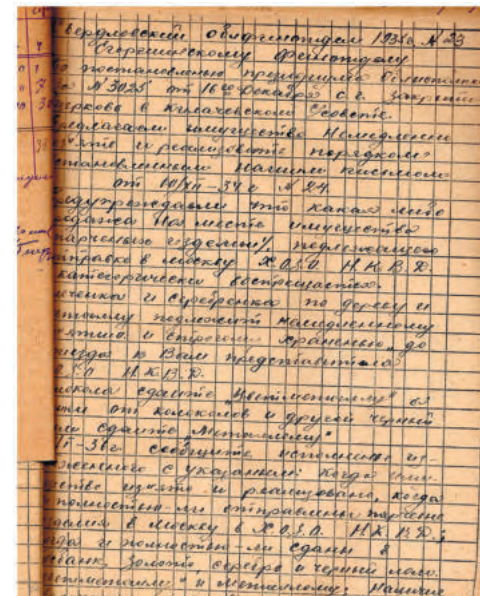 вердловский облфинотдел 1935г № 23
Егоршинскому Финотделу
постановлению президиума
№ 3025 от 16го Декабря с.г. закрыта
церковь в Кличевском Совете.
редлагаем имущество Немедленно
изъяте и реализовать порядком
становленным нашим письмом
от 10/XII-34 г №24.
едупреждаем что какая либо
родажа на месте имущества
парчевых изделий, подлежащего
тправке в Москву Х.О.З.О. Н.К.В.Д.
категорически воспрещается.
и серебренка по дереву и
подлежит немедленному
изъятию и строгому хранению до
риезда к Вам представителя
О.З.О Н.К.В.Д.
локола сдайте "Цветметлому" а
от колоколов и другой черный
сдайте "Метлому"
-36г сообщите исполнение из-
ложенного с указанием: когда
ство изъято и реализовано, когда
полностью-ли отправлены парчевые
делия в Москву в Х.О.З.О. Н.К.В.Д.;
гда и полностью-ли сданы в
сбанк золото, серебро и черный лом.
" и Метлому; наличие